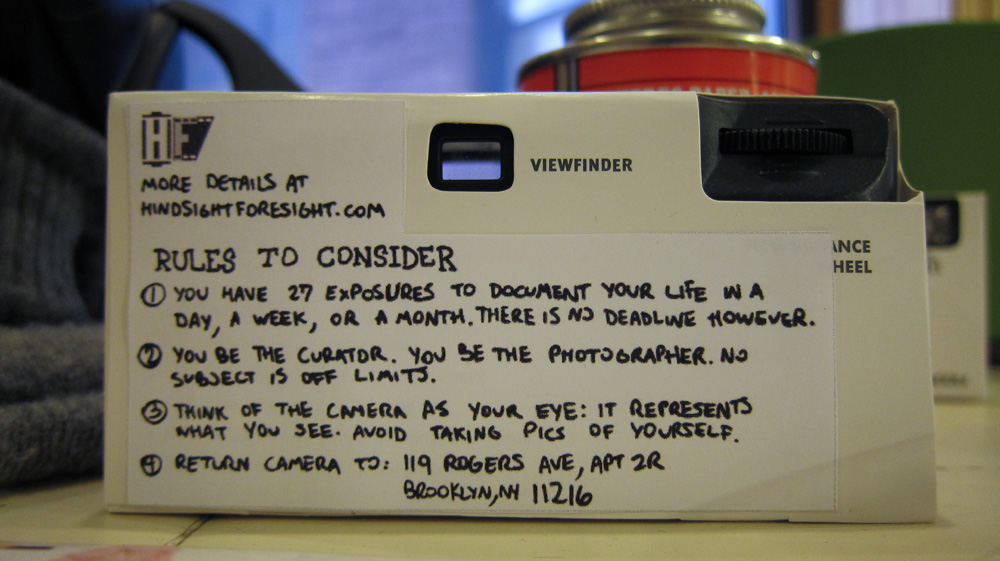 HF
MORE DETAILS AT
HINDSIGHTFORESIGHT.COM
VIEWFINDER
ANCE
HEEL
RULES TO CONSIDER
① YOU HAVE 27 EXPOSURES TO DOCUMENT YOUR LIFE IN A
DAY, A WEEK, OR A MONTH. THERE IS NO DEADLINE HOWEVER.
② YOU BE THE CURATOR. YOU BE THE PHOTOGRAPHER. NO
SUBJECT IS OFF LIMITS.
③ THINK OF THE CAMERA AS YOUR EYE: IT REPRESENTS
WHAT YOU SEE. AVOID TAKING PICS OF YOURSELF.
④ RETURN CAMERA TO: 119 ROGERS AVE, APT 2R
BROOKLYN, NY 11216